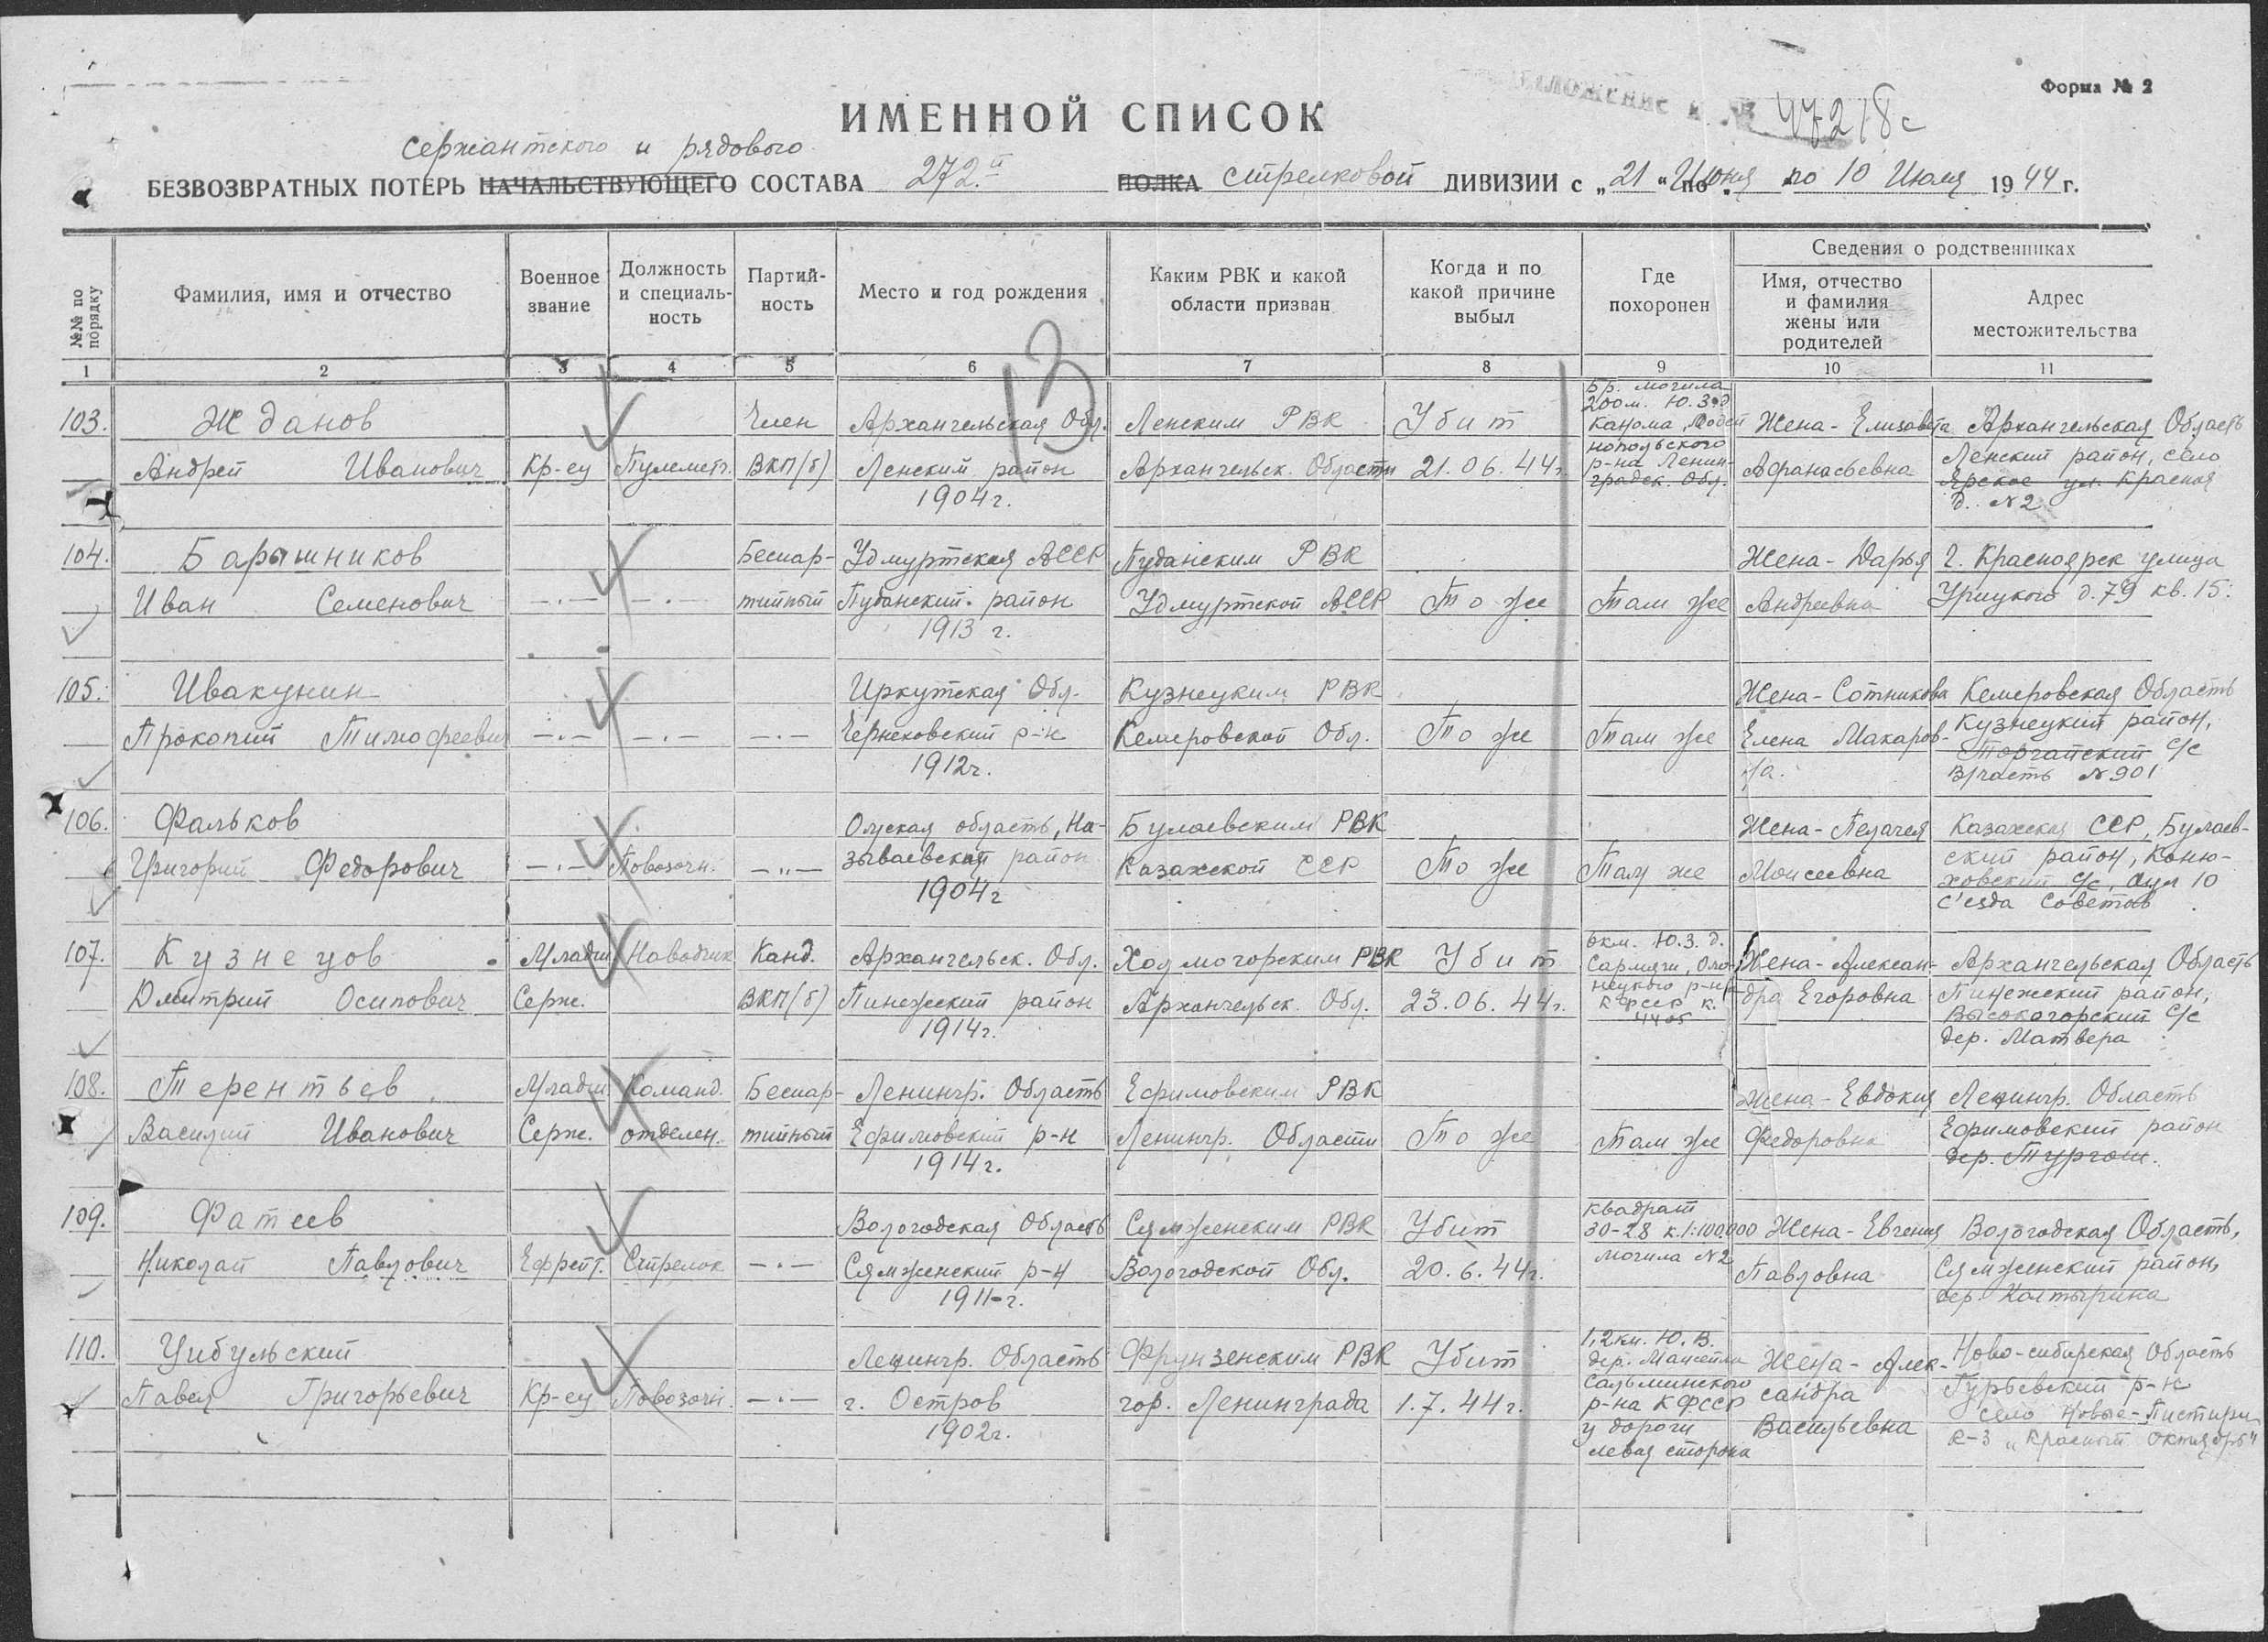 Форма № 2
ложение к №
47218с
ИМЕННОЙ СПИСОК
сержантского и рядового
БЕЗВОЗВРАТНЫХ ПОТЕРЬ НАЧАЛЬСТВУЮЩЕГО СОСТАВА 272й ПОЛКА стрелковой ДИВИЗИИ с „21" Июня по 10 Июля 1944 г.
№№ по порядку
Фамилия, имя и отчество
Военное звание
Должность и специаль-ность
Партий-ность
Место и год рождения
Каким РВК и какой области призван
Когда и по какой причине выбыл
Где похоронен
Сведения о родственниках
Имя, отчество и фамилия жены или родителей
Адрес местожительства
1 2 3 4 5 6 7 8 9 10 11
13
103. Жданов Андрей Иванович
Кр-ец
Пулеметч.
Член ВКП(б)
Архангельская Обл. Ленским район 1904г.
Ленским РВК Архангельск. Области
Убит 21.06.44г.
Бр. могила 200м. Ю.З.д. Канома, Подпорожского р-на Ленин-градск. Обл.
Жена - Елизавета Афанасьевна
Архангельская Область Ленский район, село Ярское ул. Красная д. №2
104. Барашников Иван Семенович
-·-
-·-
Беспар-тийный
Удмуртская АССР Пудемский район 1913 г.
Удмуртской АССР
То же
Там же
Жена - Дарья Андреевна
г. Красноярск улица Урицкого д.79 кв.15.
105. Ивакунин Прокопий Тимофеевич
-·-
-·-
-·-
Иркутская Обл. р-н 1912г.
Кузнецким РВК Кемеровской Обл.
То же
Там же
Жена - Сотникова Елена Макаров-на.
Кемеровская Область Кузнецкий район, с/с в/часть №901
106. Фальков Григорий Федорович
-·-
Повозочн.
-"-
Омская область, На-зываевский район 1904г
Булаевским РВК Казахской ССР
То же
Там же
Жена - Пелагея Моисеевна
Казахская ССР, Булаев-ский район, Коню-ховский с/с, аул 10 с'езда Советов
107. Кузнецов Дмитрий Осипович
Младш Серж.
Наводчик
Канд. ВКП(б)
Архангельск. Обл. Пинежский район 1914г.
Холмогорским РВК Архангельск. Обл.
Убит 23.06.44г.
6км. Ю.З. д. Сармяги, Оло-нецкого р-на КФССР к.
Жена - Алексан-дра Егоровна
Архангельская Область Пинежский район, Высокогорский с/с дер. Матвера
108. Терентьев Василий Иванович
Младш. Серж.
Команд. отделен.
Беспар-тийный
Ленингр. Область Ефимовский р-н 1914г.
Ефимовским РВК Ленингр. Области
То же
Там же
Жена - Евдокия Федоровна
Ленингр. Область Ефимовский район дер. Тургош.
109. Фатеев Николай Павлович
Ефрейт.
Стрелок
-·-
Вологодская Область Сямженский р-н 1911г.
Сямженским РВК Вологодской Обл.
Убит 20.6.44г.
квадрат 30-28 к.1:100.000 могила №2
Жена - Евгения Павловна
Вологодская Область, Сямженский район, дер. Колтырина
110. Цибульский Павел Григорьевич
Кр-ец
Повозочн.
-·-
Ленингр. Область г. Остров 1902г.
Фрунзенским РВК гор. Ленинграда
Убит 1.7.44г.
1,2км. Ю.В. дер. Сальминского р-на КФССР у дороги левая сторона
Жена - Алек-сандра Васильевна
Ново-сибирская Область Гурьевский р-н село Новые-Пистири к-з „Красный октябрь"